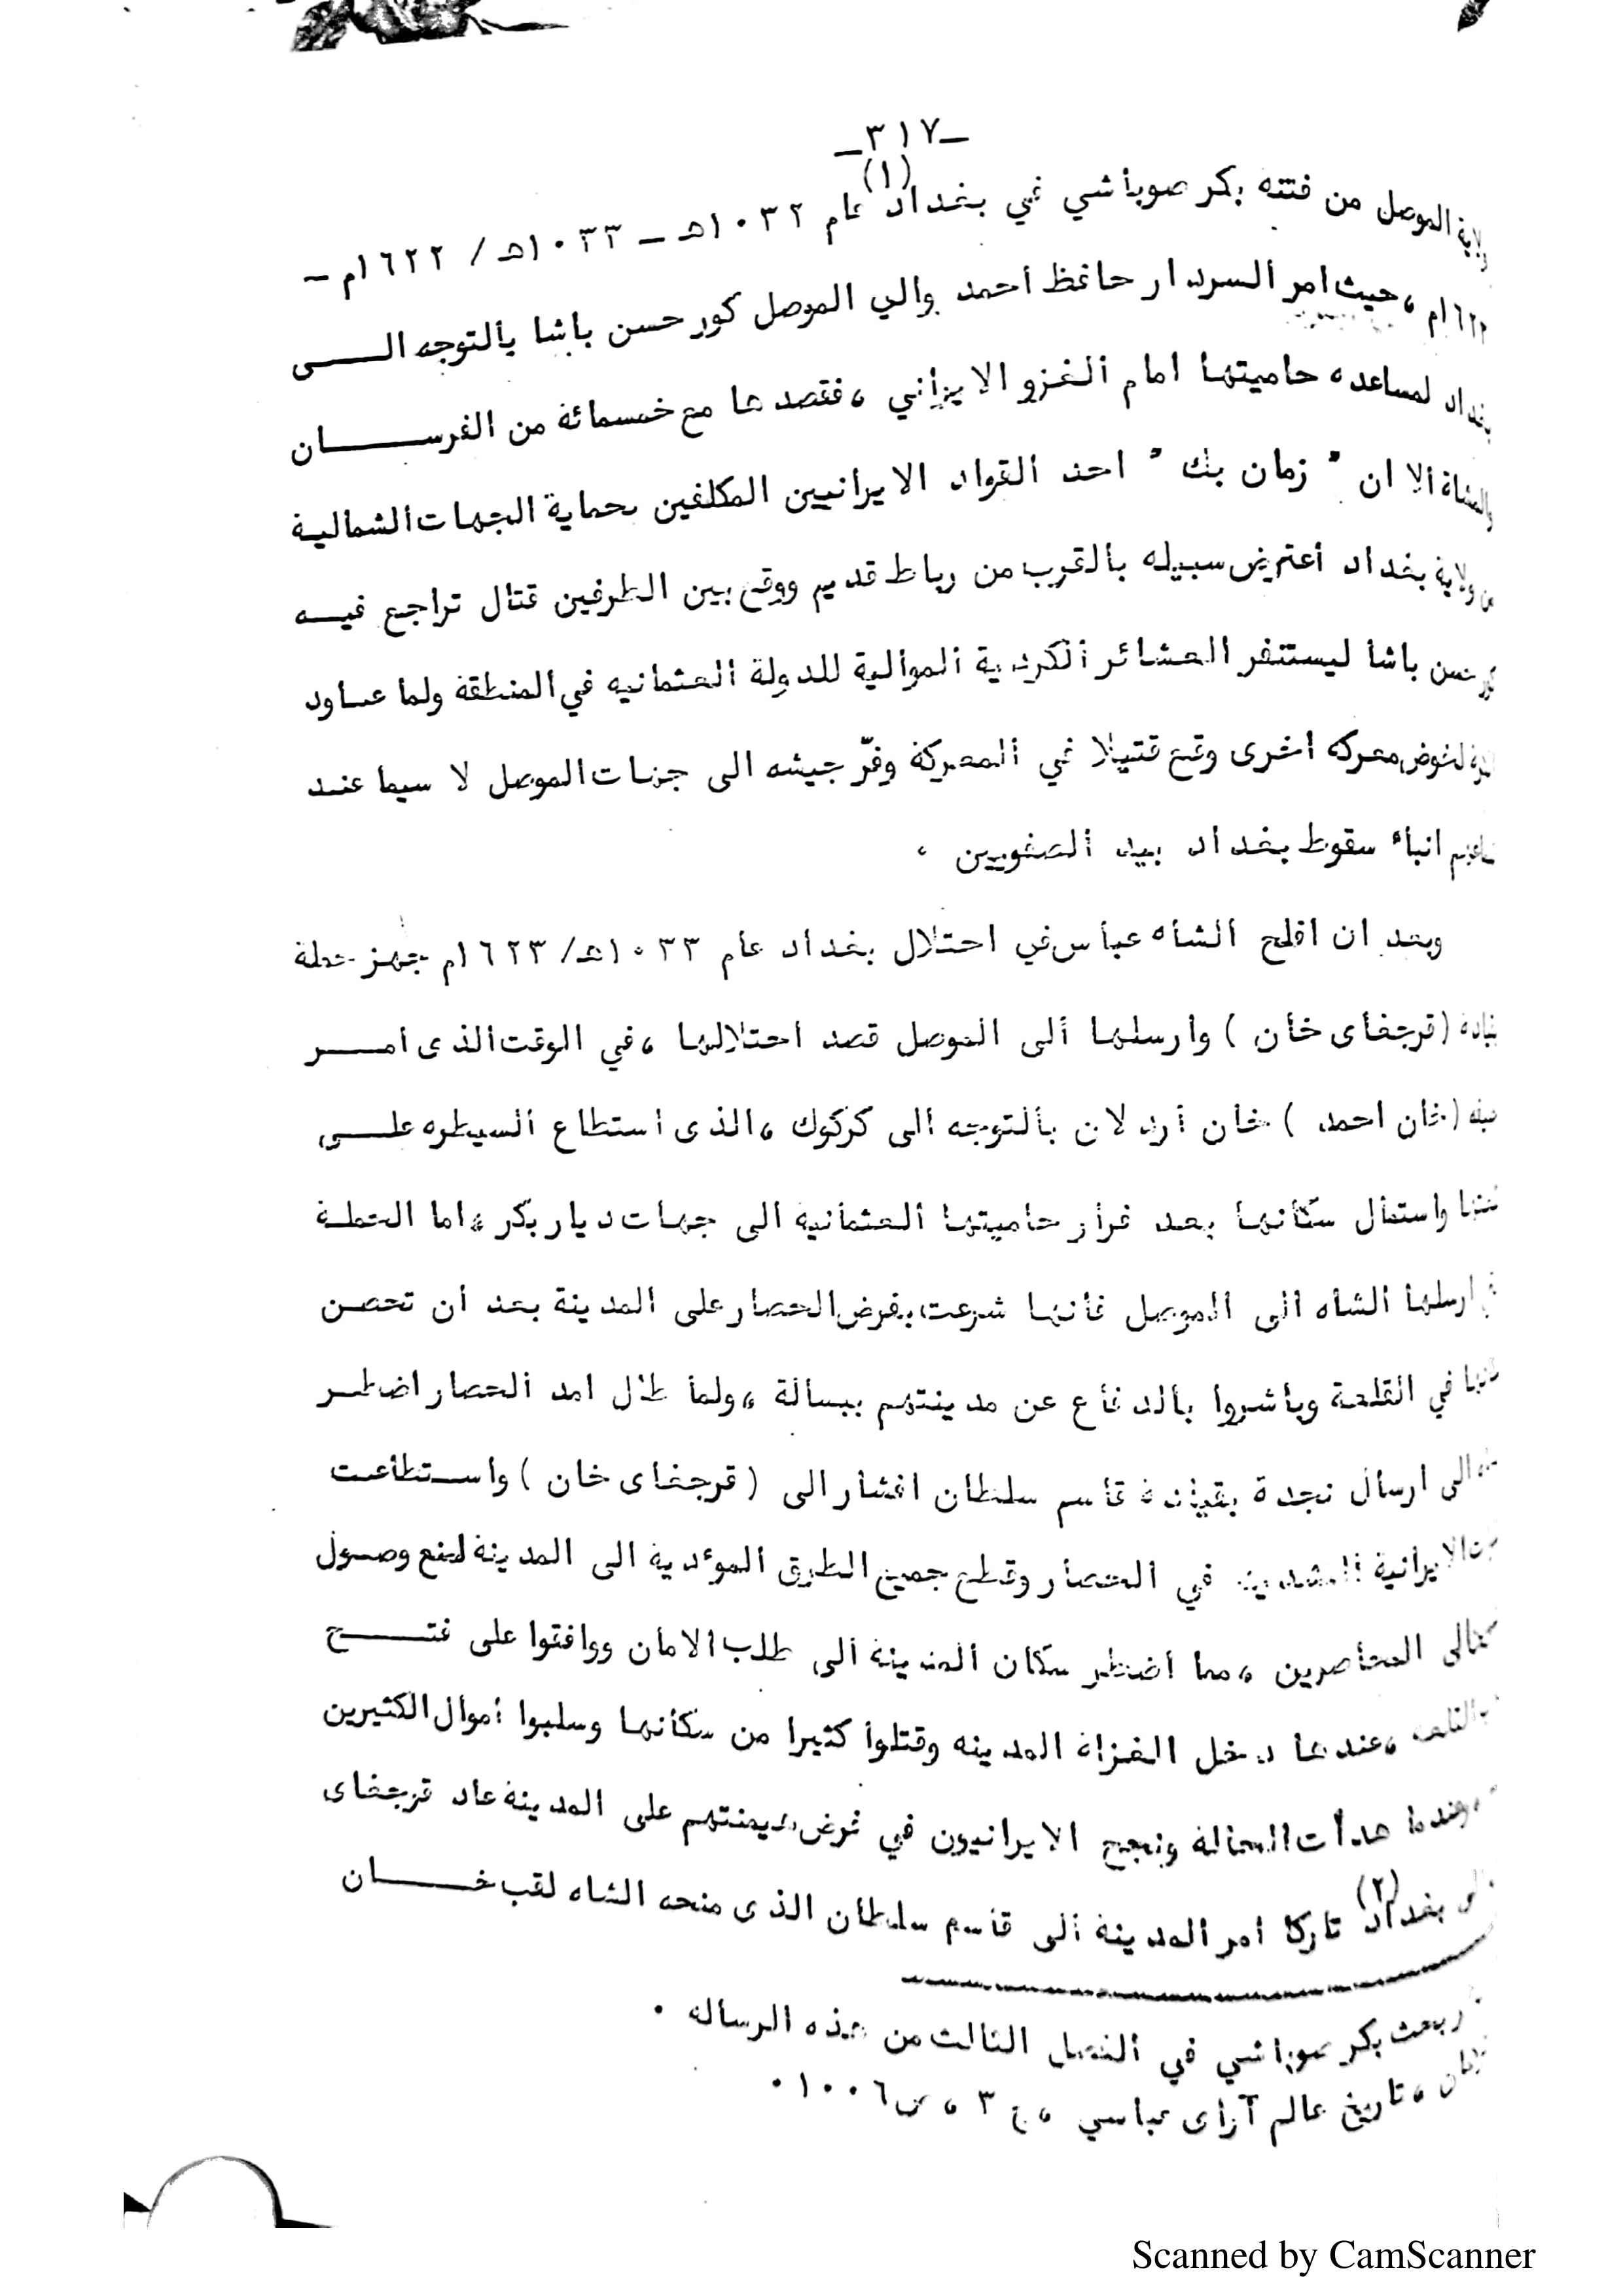 _٣١٧_
ولاية الموصل من فتنه بكر صوباشي في بغداد(١) عام ١٠٣٢هـ _ ١٠٣٣هـ / ١٦٢٢م _
، حيث امر السردار حافظ احمد والي الموصل كور حسن باشا بالتوجه الى
بغداد لمساعده حاميتها امام الغزو الايراني ، فقصدها مع خمسمائة من الفرسان
والمشاة الا ان " زمان بك " احد القواد الايرانيين المكلفين بحماية الجهات الشمالية
من ولاية بغداد اعترض سبيله بالقرب من رباط قديم ووقع بين الطرفين قتال تراجع فيه
كور حسن باشا ليستنفر العشائر الكردية الموالية للدولة العثمانيه في المنطقة ولما عاود
لخوض معركه اخرى وقع قتيلا في المعركة وفرّ جيشه الى جهات الموصل لا سيما عند
انباء سقوط بغداد بيد الصفويين ،
وبعد ان افلح الشاه عباس في احتلال بغداد عام ١٠٣٣هـ/ ١٦٢٣م جهز حملة
بقيادة (قرجغاى خان ) وارسلها الى الموصل قصد احتلالها ، في الوقت الذى امر
فيه (خان احمد ) خان اردلان بالتوجه الى كركوك ، الذى استطاع السيطره على
واستمال سكانها بعد فرار حاميتها العثمانيه الى جهات ديار بكر ، اما الحملة
ارسلها الشاه الى الموصل فانها شرعت بفرض الحصار على المدينة بعد ان تحصن
في القلعة وباشروا بالدفاع عن مدينتهم ببسالة ، ولما طال امد الحصار اضطر
الى ارسال نجدة بقيادة قاسم سلطان افشار الى ( قرجغاى خان ) واستطاعت
الايرانية في الحصار وقطع جميع الطرق الموءدية الى المدينة لمنع وصول
الى المحاصرين ، مما اضطر سكان المدينة الى طلب الامان ووافقوا على فتح
، عندها دخل الغزاة المدينه وقتلوا كثيرا من سكانها وسلبوا أموال الكثيرين
وعندما هدأت الحالة ونجح الايرانيون في فرض هيمنتهم على المدينة عاد قرجغاى
الى بغداد(٢) تاركا امر المدينة الى قاسم سلطان الذى منحه الشاه لقب خان
بكر صوباشي في الفصل الثالث من هذه الرساله .
، تاريخ عالم آراى عباسي ، ج ٣ ، ص ١٠٠٦ .
Scanned by CamScanner